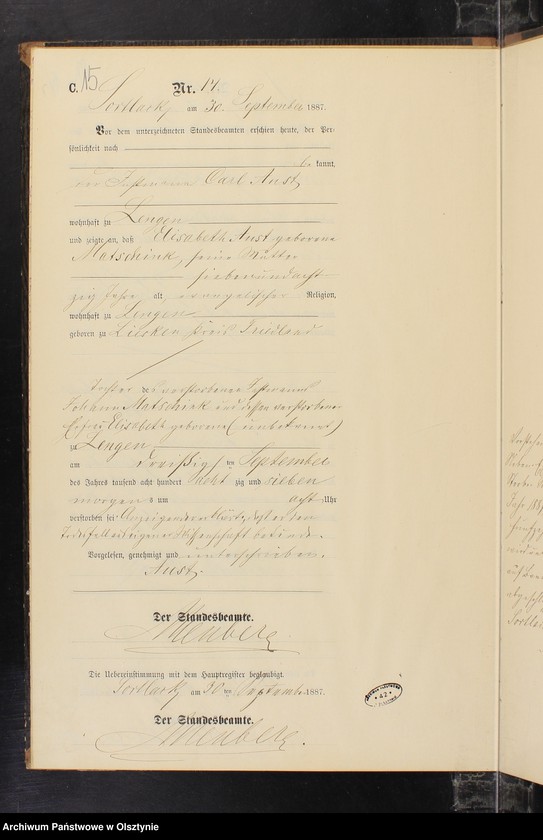 C. 15
Nr. 14.
Sortlack am 30. September 1887.
Vor dem unterzeichneten Standesbeamten erschien heute, der Per-
sönlichkeit nach
be kannt,
der Instmann Carl Aust,
wohnhaft zu Lengen
und zeigte an, daß Elisabeth Aust geborene
Matschink, seine Mutter
siebenundacht-
zig Jahre alt, evangelischer Religion,
wohnhaft zu Lengen
geboren zu Liesken Kreis Friedland
Tochter des verstorbenen Instmanns
Johann Matschink und dessen verstorbene
Ehefrau Elisabeth geborene (unbekannt)
zu Lengen
am dreißig ten September
des Jahres tausend acht hundert acht zig und sieben
morgens um acht Uhr
verstorben sei
Vorgelesen, genehmigt und unterschrieben.
Aust.
Der Standesbeamte.
Die Uebereinstimmung mit dem Hauptregister beglaubigt.
Sortlack am 30 ten September 1887.
Der Standesbeamte.
42
Archiwum Państwowe w Olsztynie